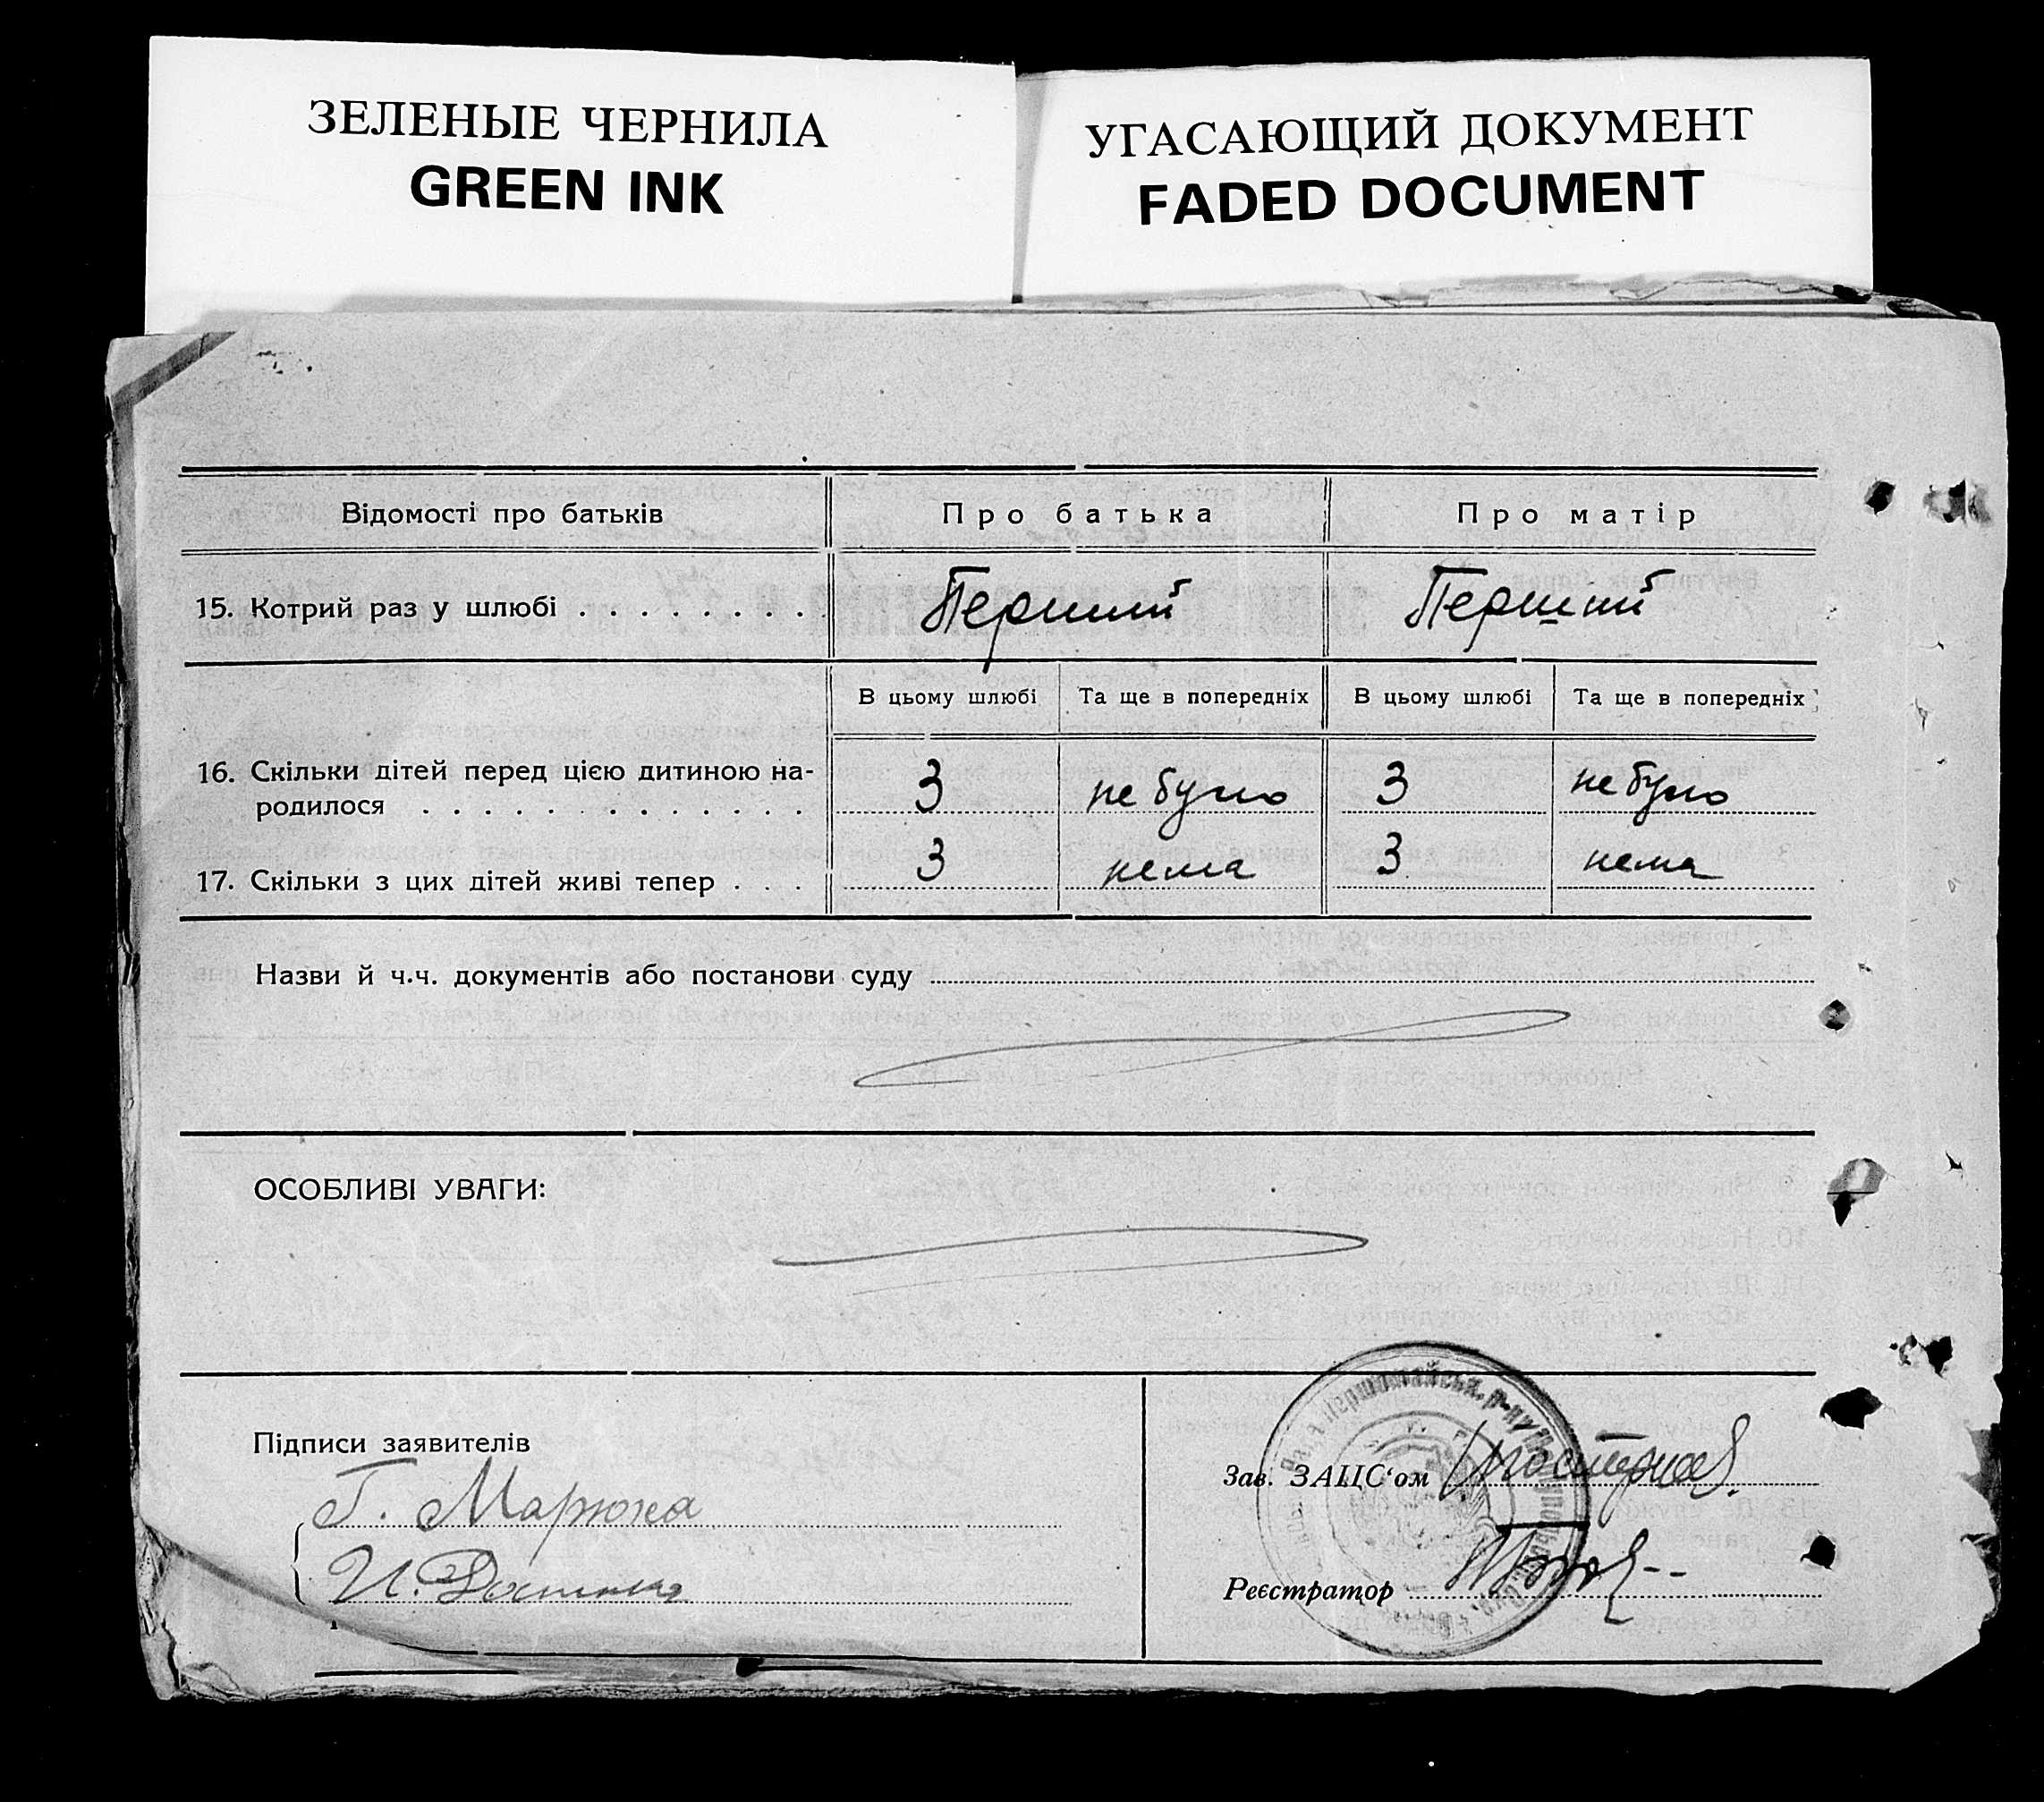 ЗЕЛЕНЫЕ ЧЕРНИЛА
GREEN INK
УГАСАЮЩИЙ ДОКУМЕНТ
FADED DOCUMENT
Відомості про батьків Про батька Про матір
15. Котрий раз у шлюбі . . . . . . . . Перший Перший
В цьому шлюбі Та ще в попередніх В цьому шлюбі Та ще в попередніх
16. Скільки дітей перед цією дитиною на-
родилося . . . . . . . . . . . . . 3 не було 3 не було
17. Скільки з цих дітей живі тепер . . . 3 нема 3 нема
Назви й ч.ч. документів або постанови суду
ОСОБЛИВІ УВАГИ:
Підписи заявителів
Г. Марюха
И.
Зав. ЗАЦС‘ом
Реєстратор